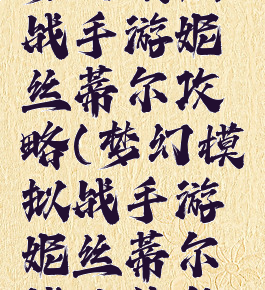 战手游妮
丝蒂尔攻
略(梦幻模
拟战手游
妮丝蒂尔